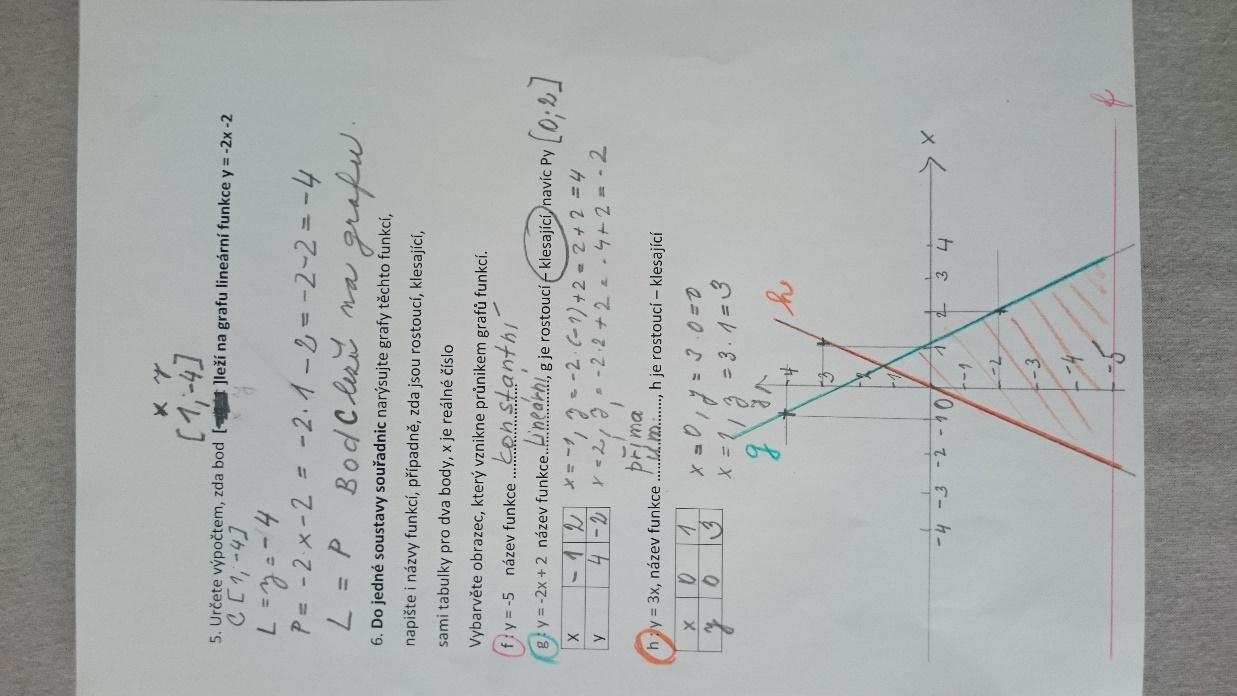 x y
[1; -4]
5. Určete výpočtem, zda bod [ ]leží na grafu lineární funkce y = -2x -2
C [1; -4]
L = y = -4
P = -2·x -2 = -2·1 -2 = -2 -2 = -4
L = P Bod C leží na grafu.
6. Do jedné soustavy souřadnic narýsujte grafy těchto funkcí,
napište i názvy funkcí, případně, zda jsou rostoucí, klesající,
sami tabulky pro dva body, x je reálné číslo
Vybarvěte obrazec, který vznikne průnikem grafů funkcí.
f: y = -5 název funkce ........konstantní
g: y = -2x + 2 název funkce...lineární..., g je rostoucí – klesající, navíc Py [0; 2]
x -1 2
y 4 -2
x = -1, y = -2·(-1)+2 = 2+2 = 4
x = 2, y = -2·2+2 = -4+2 = -2
přímá
h: y = 3x, název funkce ...úm......, h je rostoucí – klesající
x 0 1
y 0 3
x = 0, y = 3·0 = 0
x = 1, y = 3·1 = 3
g
y
h
4
3
2
1
-4 -3 -2 -1 0 1 2 3 4 x
-1
-2
-3
-4
-5
f